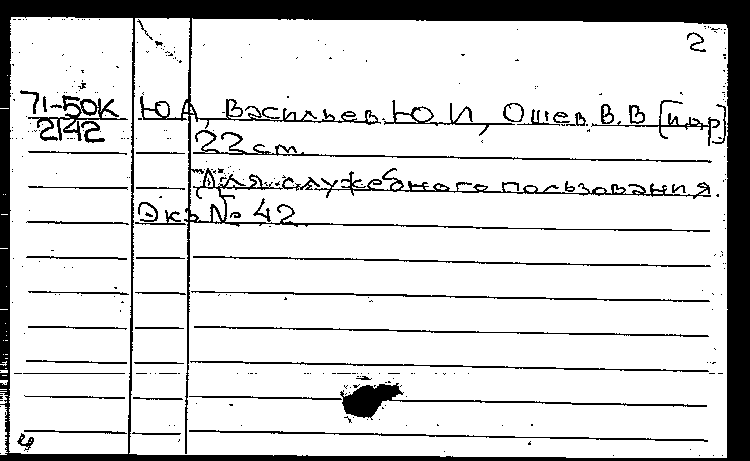 2
71-50К Ю А, Васильев Ю И, Ошев В. В [и др]
2142
22 ст.
Для служебного пользования.
Экз № 42